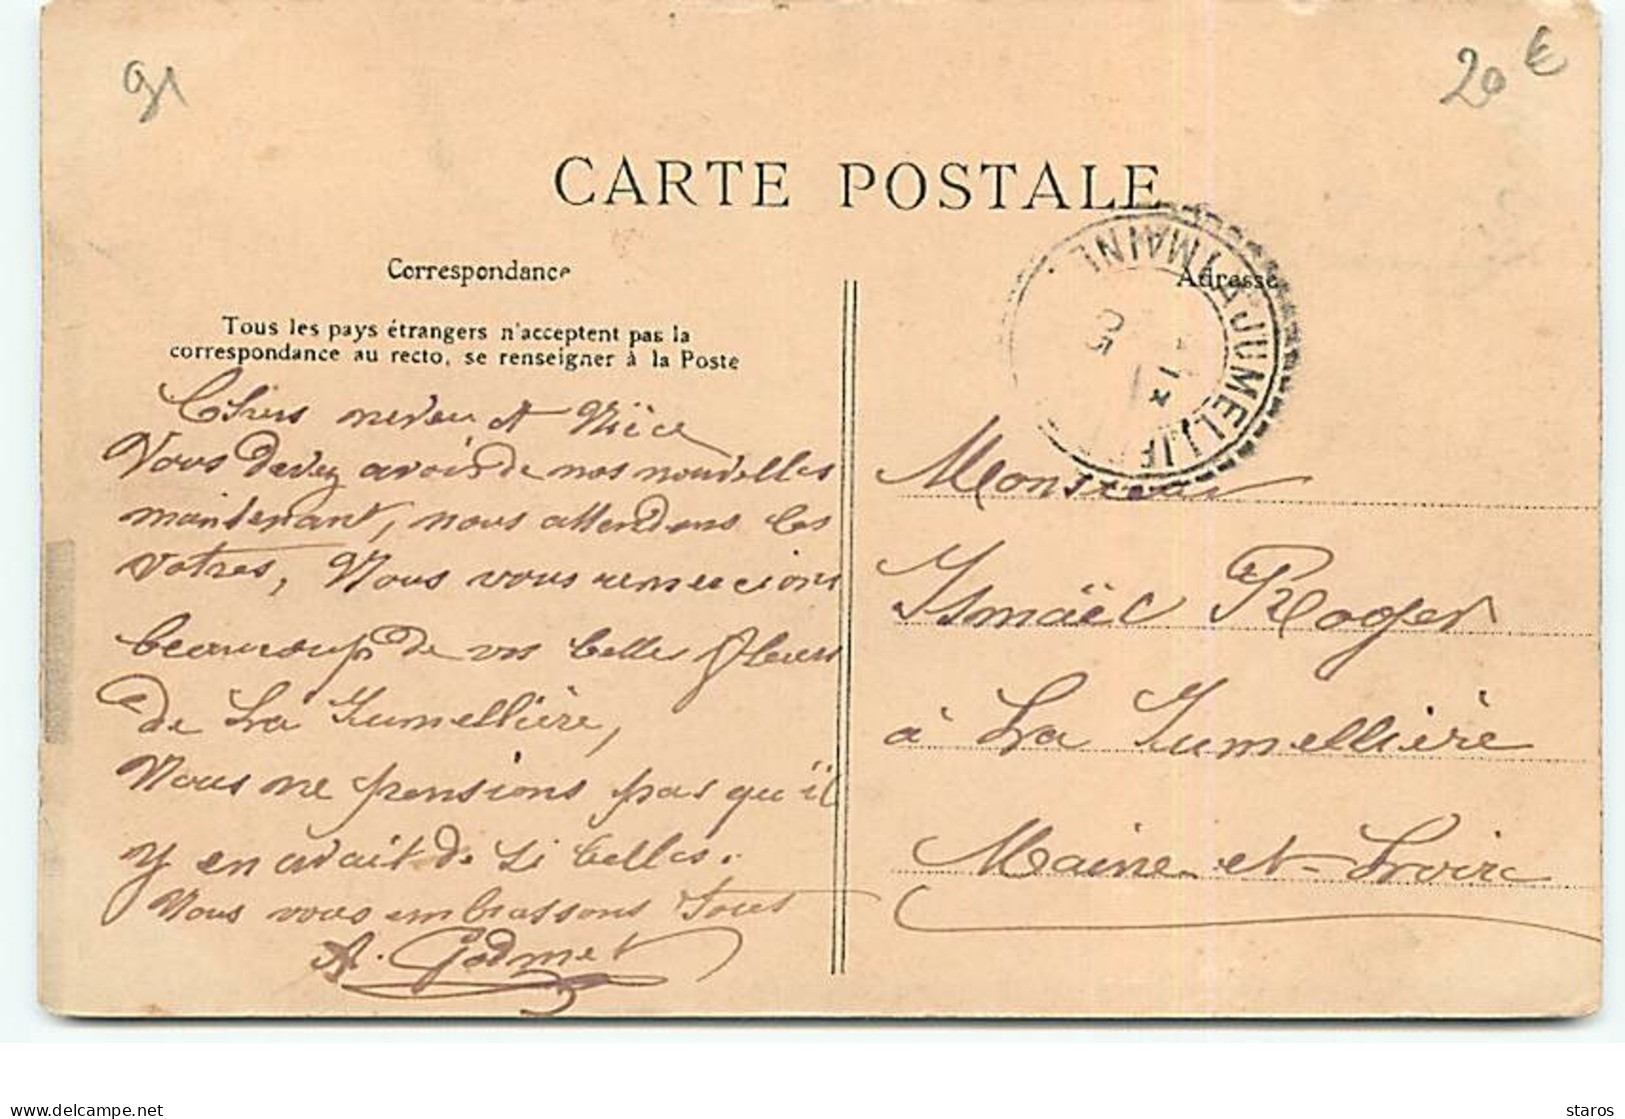 91
20 €
CARTE POSTALE
Correspondance
Adresse
LA JUMELLIÈRE
MAINE
05
Tous les pays étrangers n'acceptent pas la
correspondance au recto, se renseigner à la Poste
Chers neveu et Nièce
Vous devez avoir de nos nouvelles
maintenant, nous attendons les
votres, Nous vous remercions
beaucoup de vos belles fleurs
de La Jumellière,
Nous ne pensions pas qu'il
y en avait de si belles.
Nous vous embrassons Tous
A. Godmet
Monsieur
Ismaël Roger
à La Jumellière
Maine-et-Loire
delcampe.net
staros